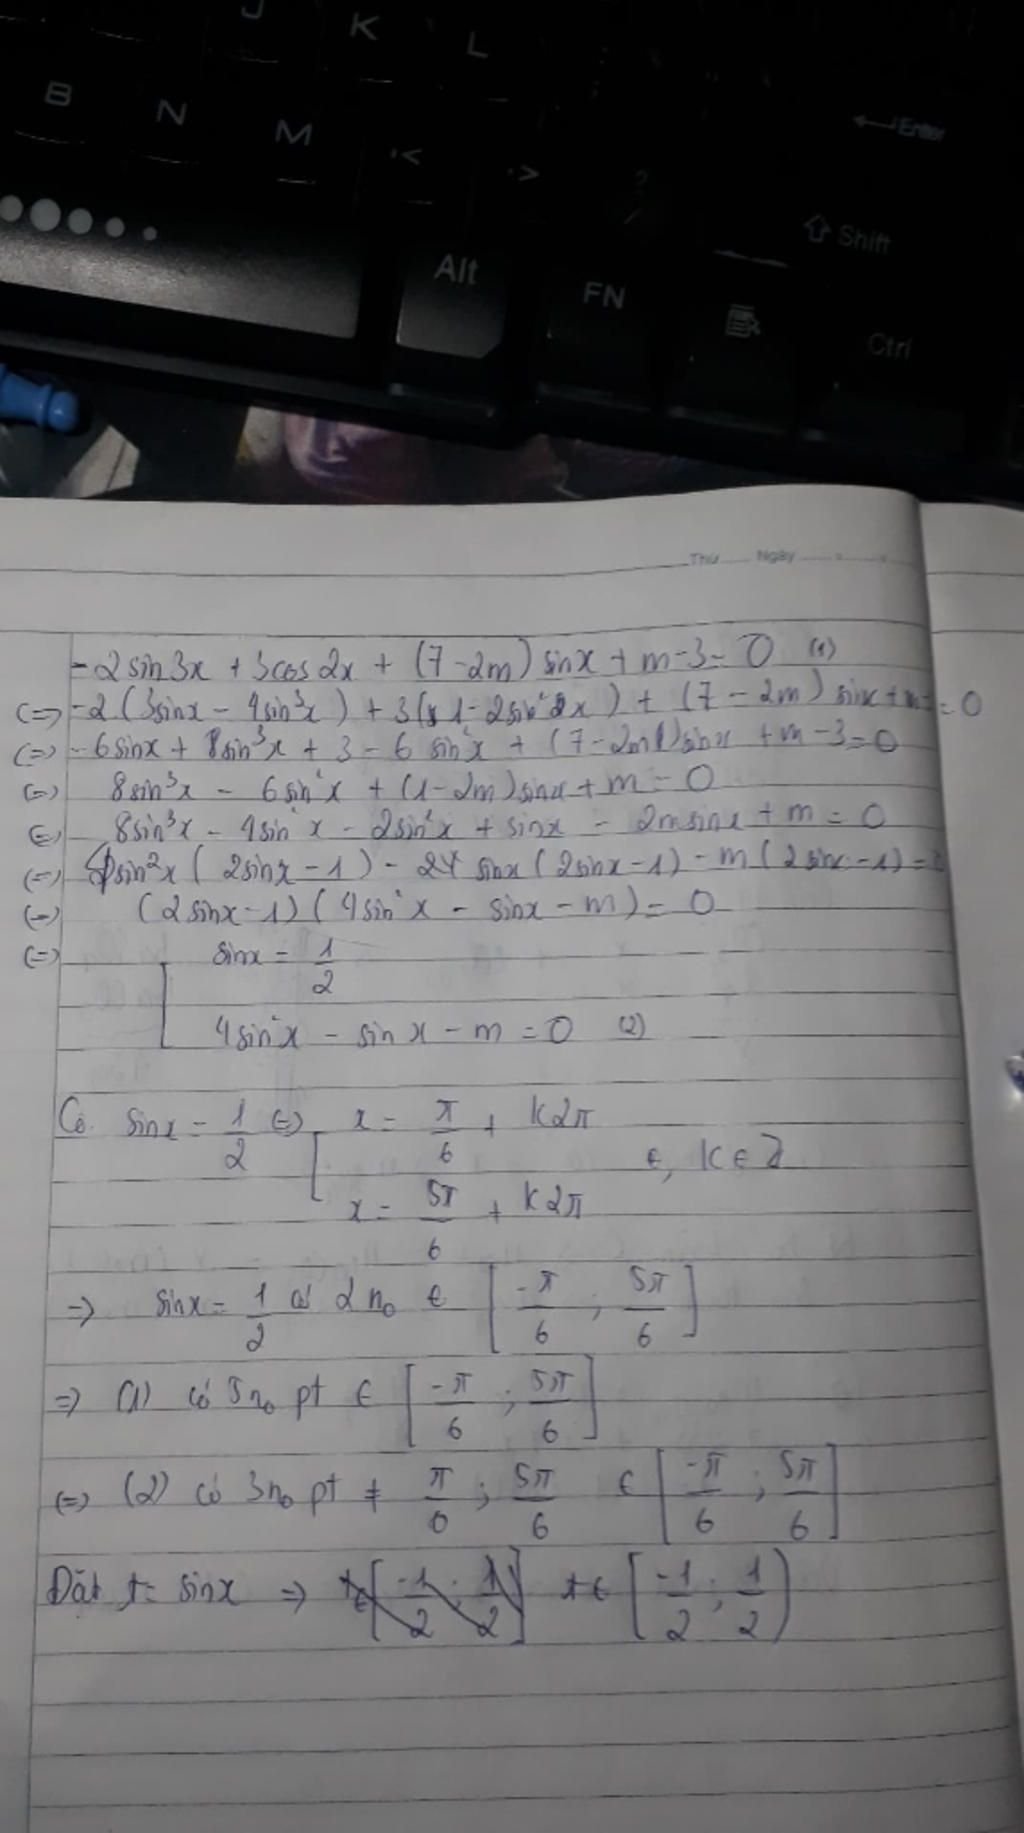 J K L
B N M < > ? Enter
Shift
Alt FN Ctrl
Thứ Ngày
-2sin3x + 3cos2x + (7-2m)sinx + m-3=0 (1)
(=) -2(3sinx - 4sin³x) + 3(1-2sin²x) + (7-2m) sinx + m = 0
(=) -6sinx + 8sin³x + 3 - 6sin²x + (7-2m)sinx + m-3=0
(=) 8sin³x - 6sin²x + (1-2m)sinx + m = 0
(=) 8sin³x - 4sin²x - 2sin²x + sinx - 2msinx + m = 0
(=) 4sin²x (2sinx-1) - sinx(2sinx-1) - m(2sinx-1)=
(=) (2sinx-1)(4sin²x - sinx - m)= 0
(=) [ sinx = 1/2
4sin²x - sinx - m = 0 (2)
Có sinx = 1/2 (=) [ x = π/6 + k2π
x = 5π/6 + k2π , k∈Z
=> sinx = 1/2 có 2 n₀ ∈ [-π/6 ; 5π/6]
=> (1) có 5n₀ pt ∈ [-π/6 ; 5π/6]
(=) (2) có 3n₀ pt ≠ π/6 ; 5π/6 ∈ [-π/6 ; 5π/6]
Đặt t= sinx => t∈ [-1/2 ; 1/2)